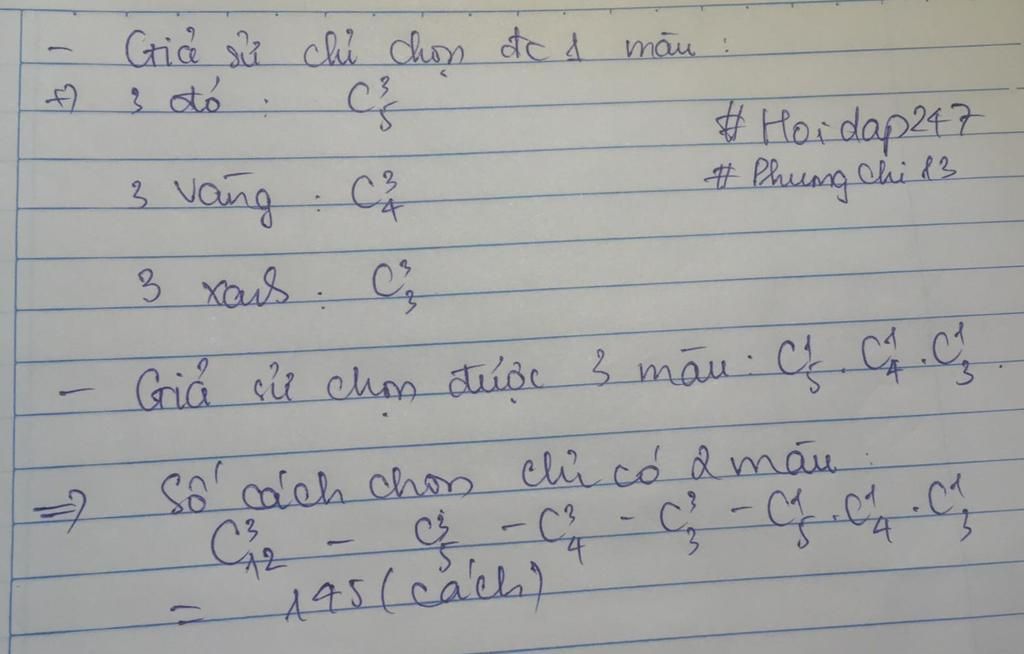 - Giả sử chỉ chọn đc 1 màu :
+) 3 đỏ : C³₅
# Hoidap247
# Phungchi13
3 vàng : C³₄
3 xanh : C³₃
- Giả sử chọn được 3 màu : C¹₅ . C¹₄ . C¹₃ .
=> Số cách chọn chỉ có 2 màu :
C³₁₂ - C³₅ - C³₄ - C³₃ - C¹₅ . C¹₄ . C¹₃
= 145 (cách)